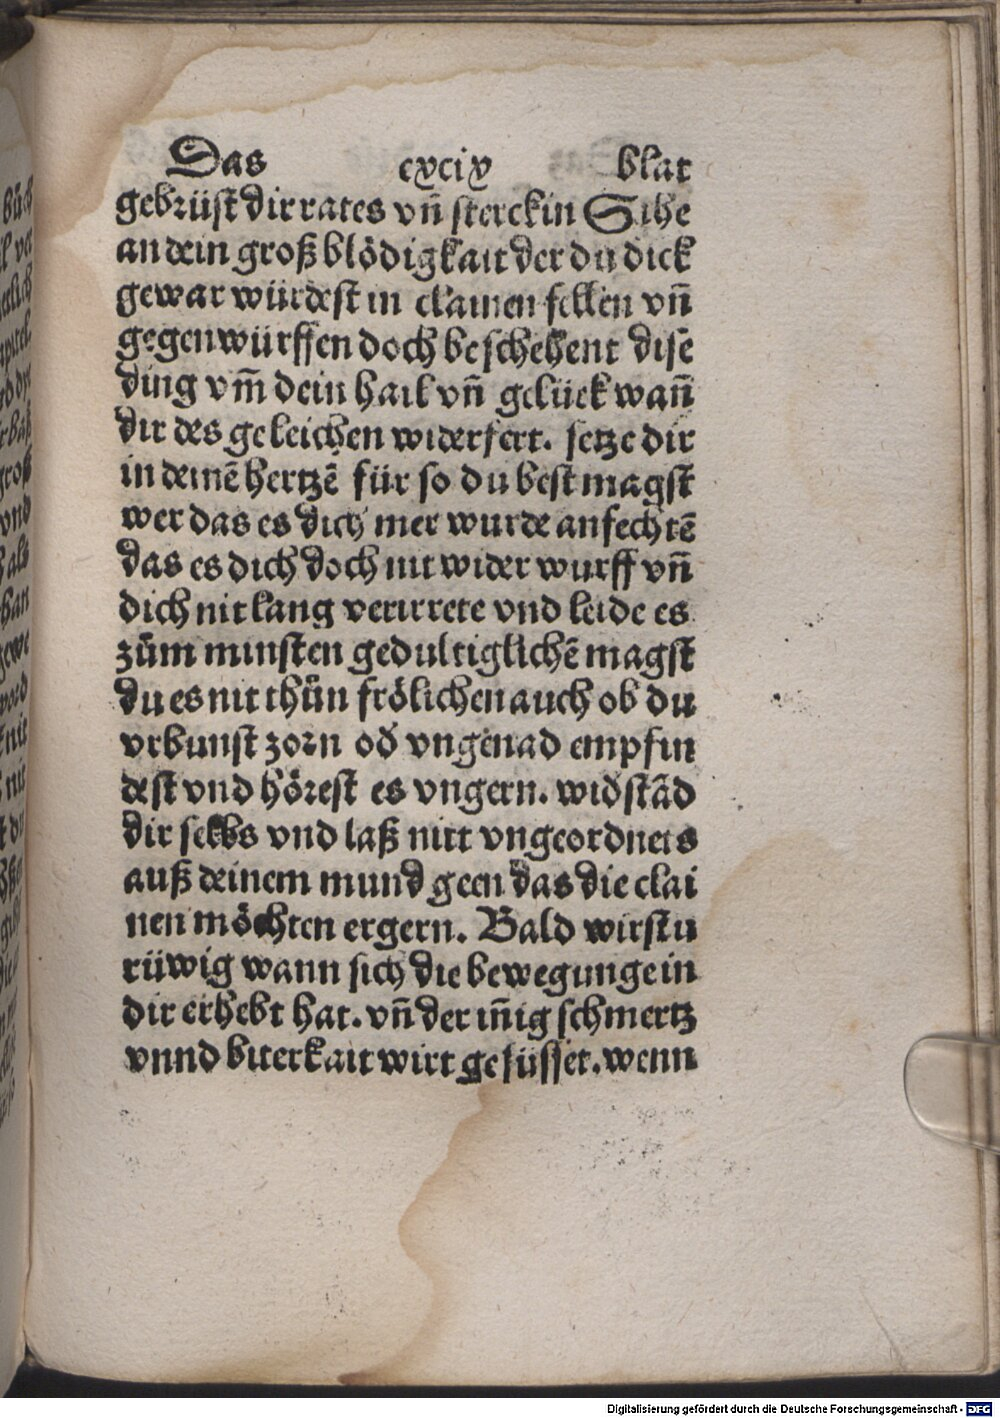 Das cxcix blat
gebrüst dir rates vn̄ sterckin Sihe
an dein groß blödigkait der du dick
gewar würdest in clainen fellen vn̄
gegenwürffen doch beschehent dise
ding vm̄ dein hail vn̄ gelück wan̄
dir des geleichen widerfert. setze dir
in deinē hertzē für so du best magst
wer das es dich mer wurde anfechtē
das es dich doch nit wider wurff vn̄
dich nit lang verirrete vnd leide es
zům minsten gedultiglichē magst
du es nit thůn frölichen auch ob du
vrbunst zorn od̛ vngenad empfin
dest vnd hörest es vngern. wid̛stād
dir selbs vnd laß nitt vngeordnets
auß deinem mund geen das die clai
nen möchten ergern. Bald wirstu
rüwig wann sich die bewegunge in
dir erhebt hat. vn̄ der in̄ig schmertz
vnnd biterkait wirt gesüsset. wenn
Digitalisierung gefördert durch die Deutsche Forschungsgemeinschaft - DFG